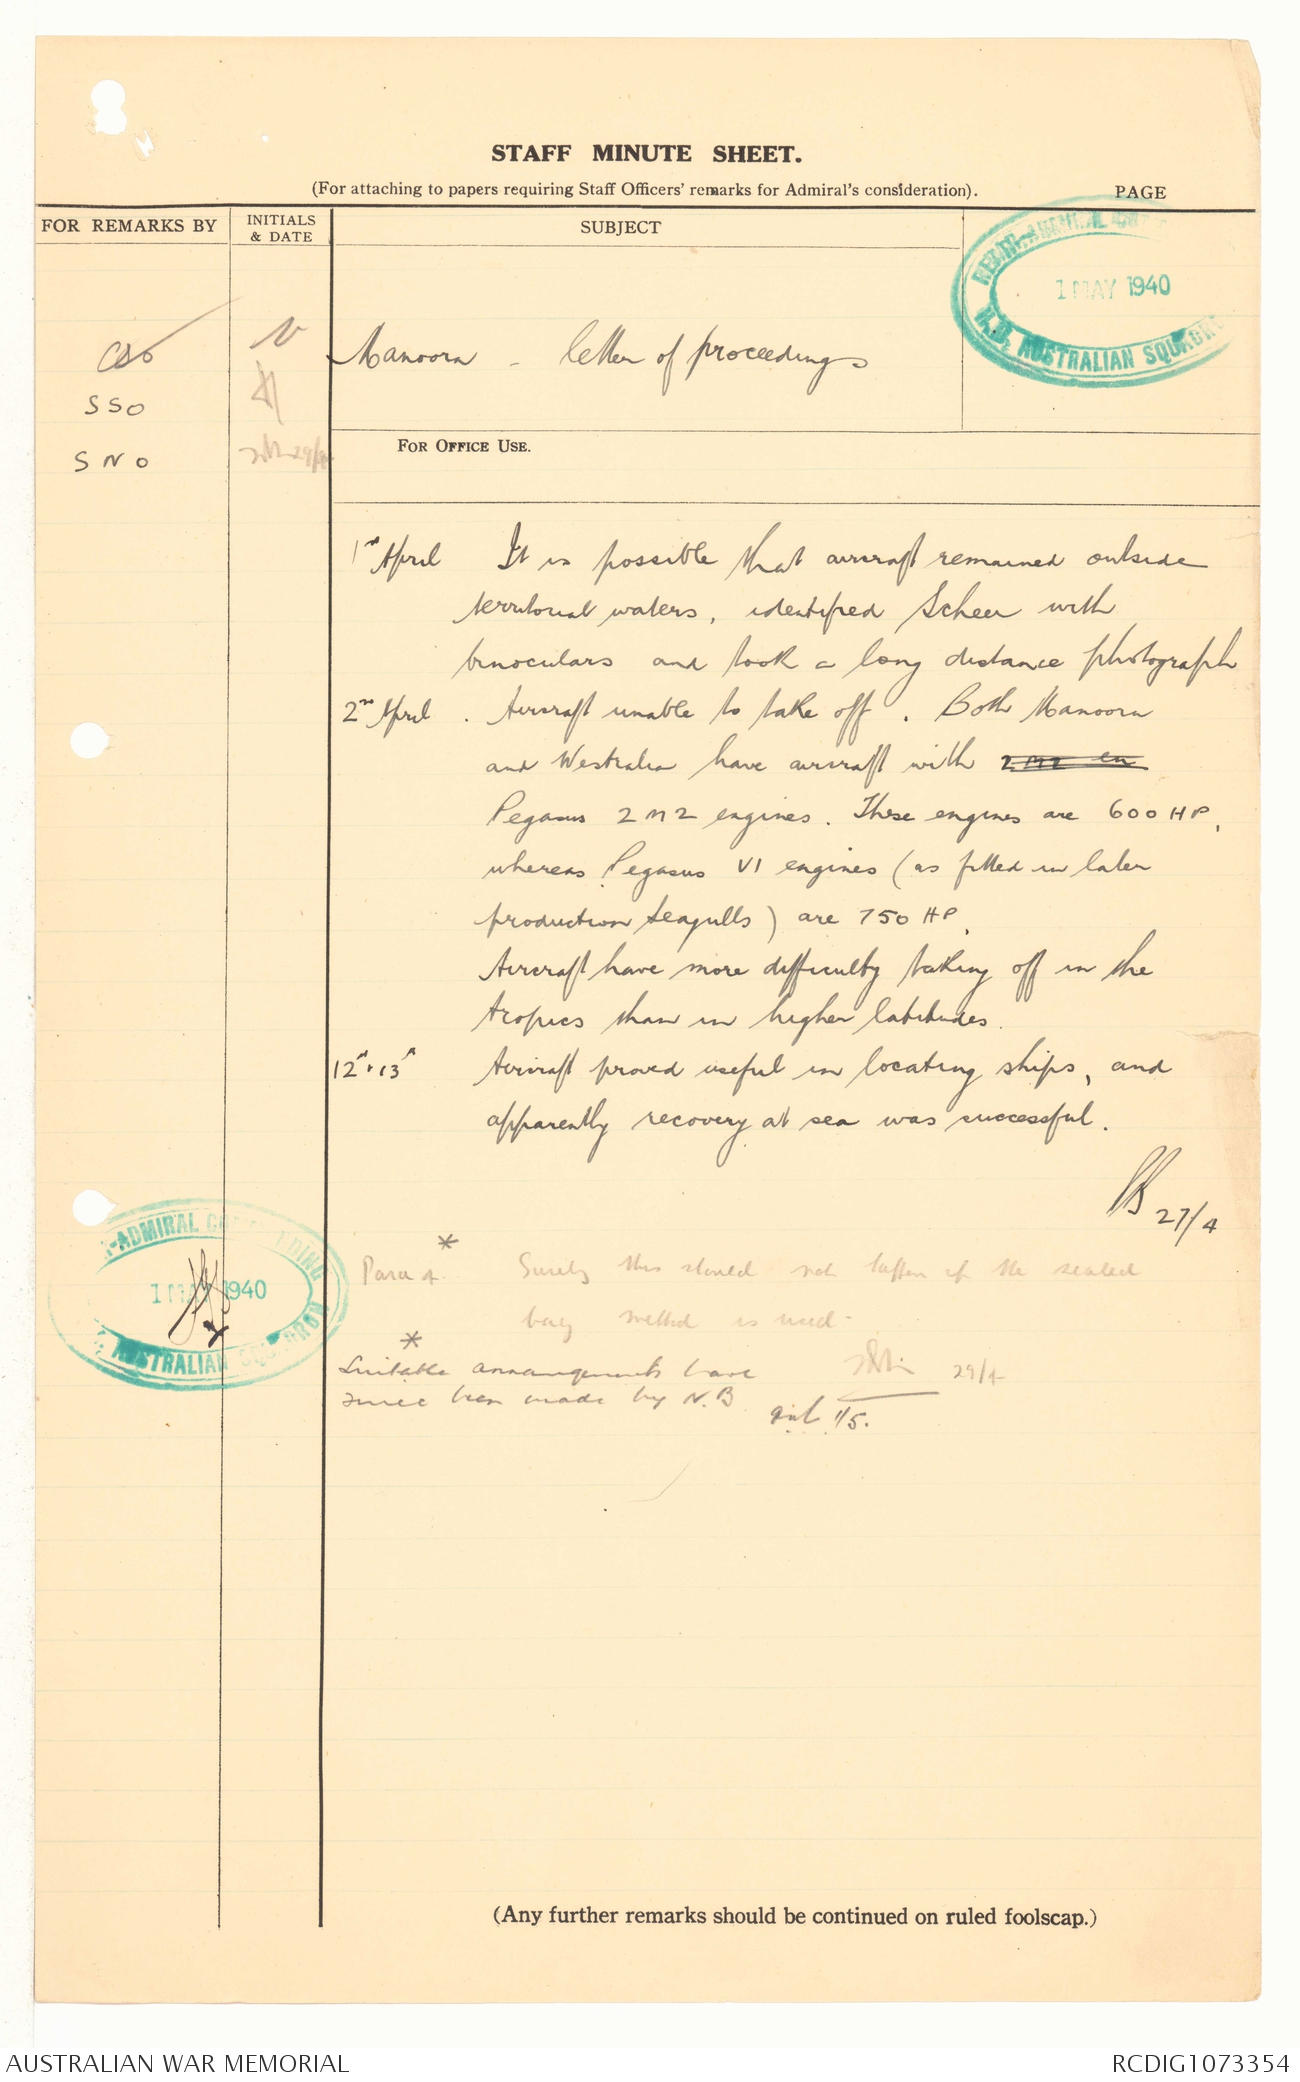 STAFF MINUTE SHEET.
(For attaching to papers requiring Staff Officers' remarks for Admiral's consideration).
PAGE
FOR REMARKS BY
INITIALS
& DATE
SUBJECT
REAR-ADMIRAL
1 MAY 1940
H.M. AUSTRALIAN SQUADRON
CSO
SSO
SNO
Manoora - letter of proceedings
FOR OFFICE USE.
1st April It is possible that aircraft remained outside
territorial waters, identified Scheer with
binoculars and took a long distance photograph
2nd April. Aircraft unable to take off. Both Manoora
and Westralia have aircraft with 2 M2 en
Pegasus 2 M2 engines. These engines are 600 HP,
whereas Pegasus VI engines (as fitted in later
production Seagulls) are 750 HP.
Aircraft have more difficulty taking off in the
tropics than in higher latitudes.
12th . 13th Aircraft proved useful in locating ships, and
apparently recovery at sea was successful.
27/4
-ADMIRAL COMMANDING
1 MAY 1940
AUSTRALIAN SQUADRON
*
Para 4. Surely this should not happen if the sealed
bag method is used.
29/4
*
Suitable arrangements have
since been made by N.B
1/5.
(Any further remarks should be continued on ruled foolscap.)
AUSTRALIAN WAR MEMORIAL
RCDIG1073354